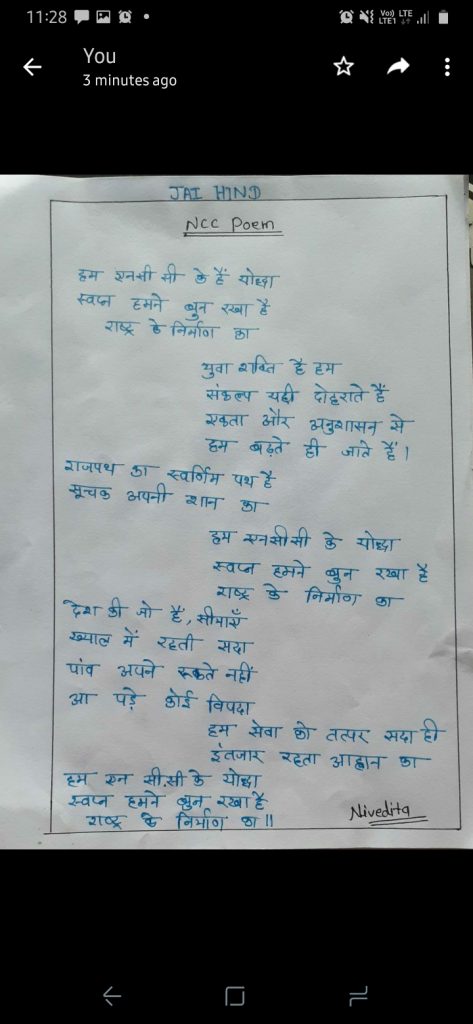 11:28
Vo)) LTE
LTE1
You
3 minutes ago
JAI HIND
NCC Poem
हम एनसी सी के हैं योद्धा
स्वप्न हमने बुन रखा है
राष्ट्र के निर्माण का
युवा शक्ति है हम
संकल्प यही दोहराते हैं
एकता और अनुशासन से
हम बढ़ते ही जाते हैं।
राजपथ का स्वर्णिम पथ है
सूचक अपनी शान का
हम एनसीसी के योद्धा
स्वप्न हमने बुन रखा है
राष्ट्र के निर्माण का
देश की जो हैं, सीमाएँ
ख्याल में रहती सदा
पांव अपने रूकते नहीं
आ पड़े कोई विपदा
हम सेवा को तत्पर सदा ही
इंतजार रहता आह्वान का
हम एन सी.सी के योद्धा
स्वप्न हमने बुन रखा है
राष्ट्र के निर्माण का॥
Nivedita